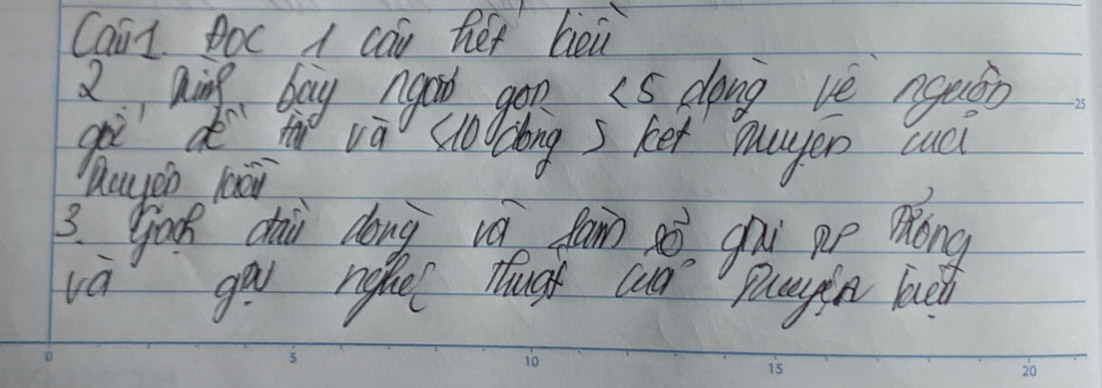 Câu 1. Đọc 1 câu hết kiều
2 Trình bày ngắn gọn <5 dòng về nguồn
gốc đề tài và <10 dòng kết truyện của
Truyện kiều
3. Gạch đầu dòng và làm rõ giá trị
và giá trị nghệ thuật của Truyện kiều
25
0 5 10 15 20